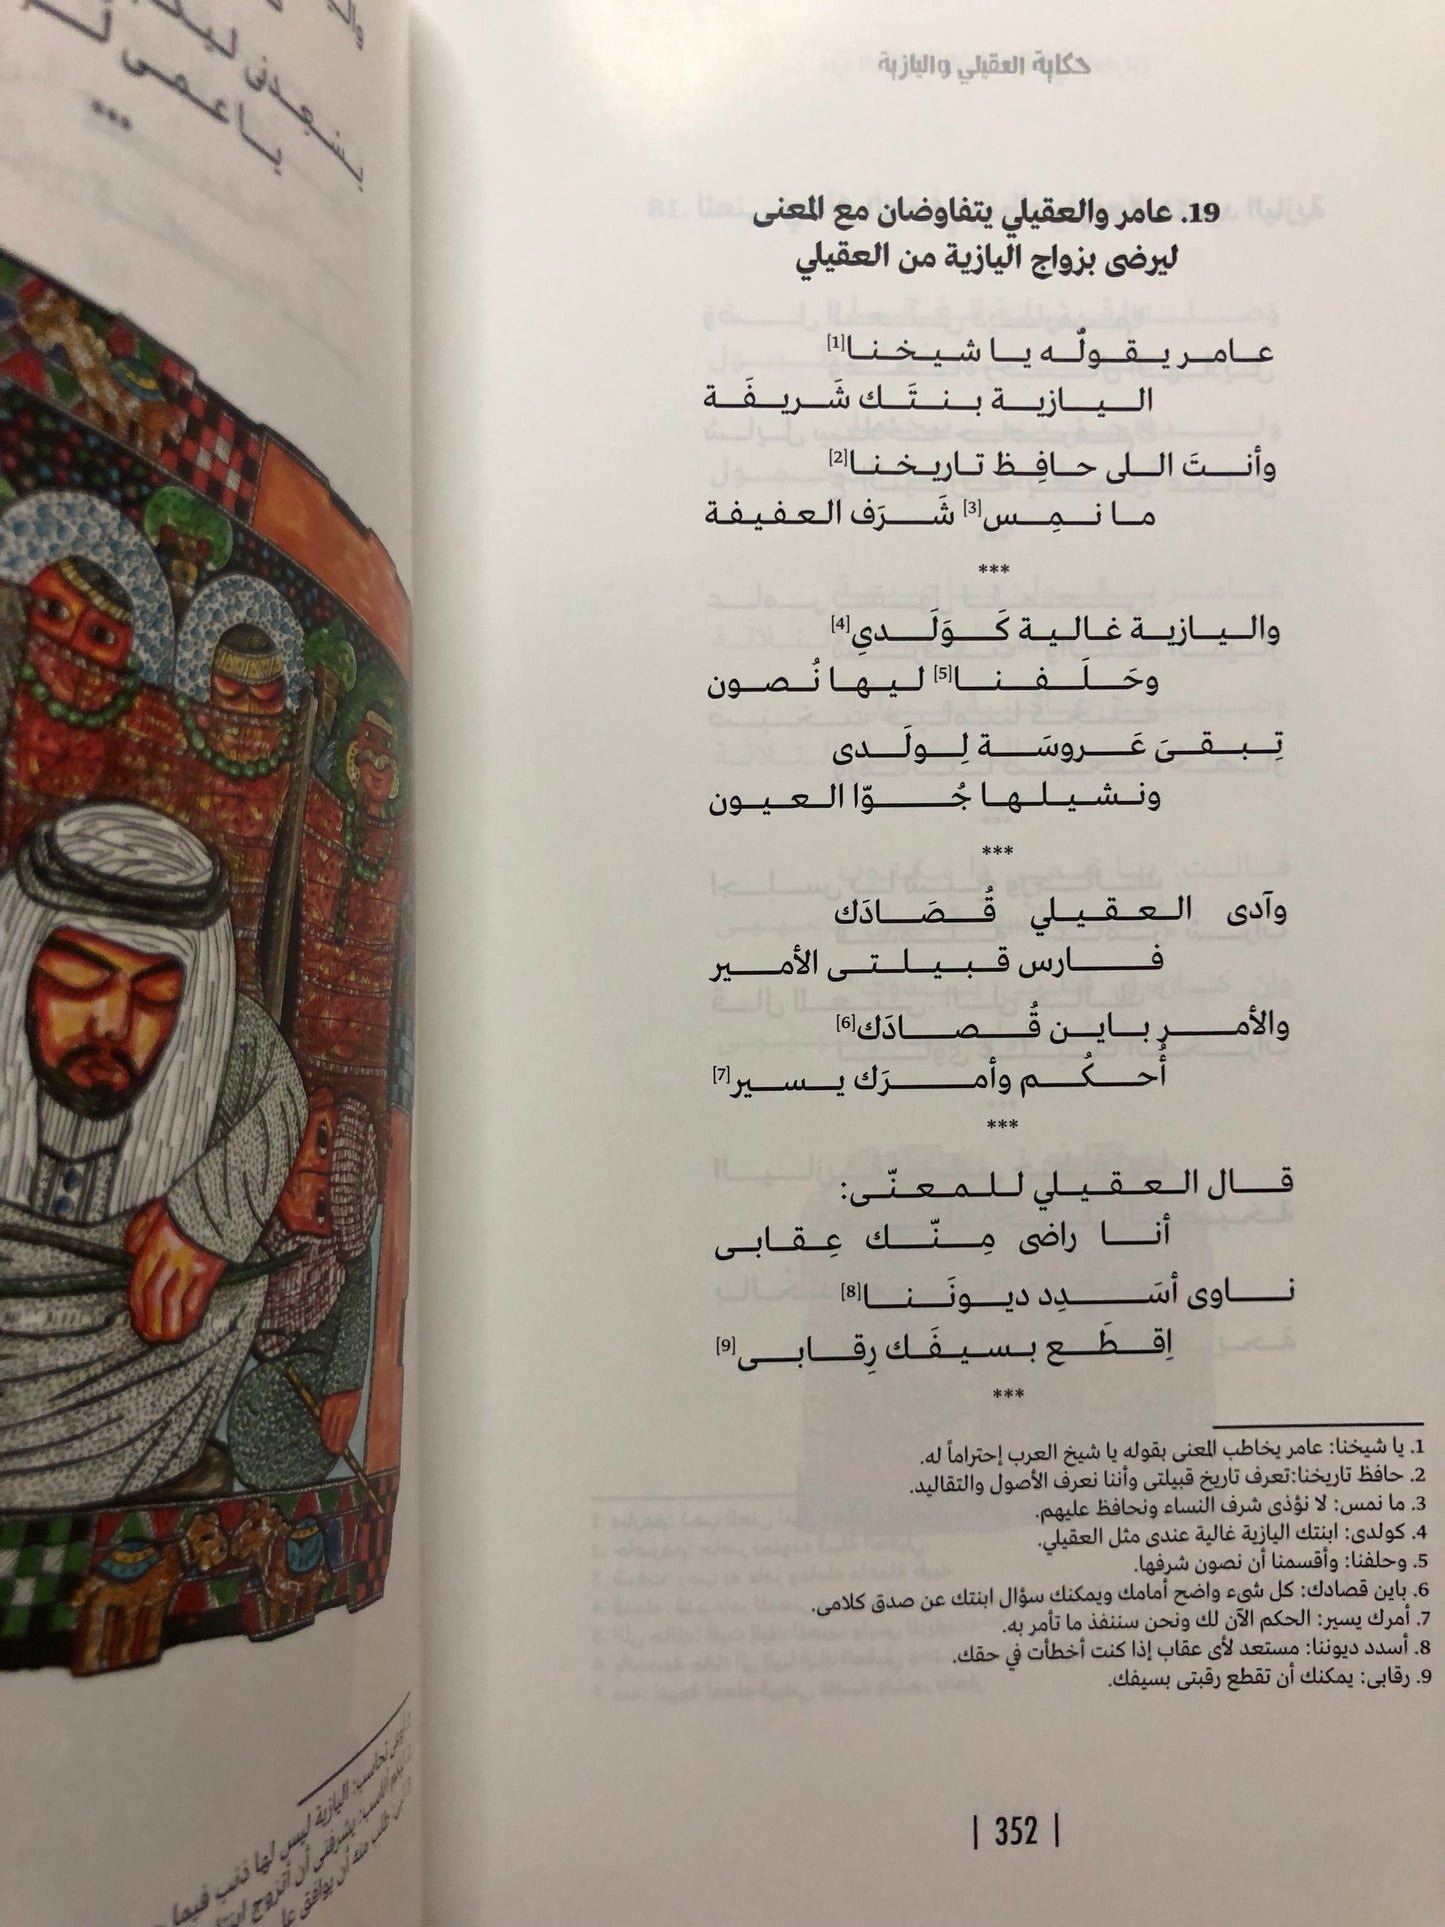 حكاية العقيلي واليازية
19. عامر والعقيلي يتفاوضان مع المعنى
ليرضى بزواج اليازية من العقيلي
عامر يقولُه يا شيخنا[1]
اليازية بنتَك شَريفَة
وأنتَ اللى حافِظ تاريخنا[2]
ما نمِس[3] شَرَف العفيفة
***
واليازية غالية كَوَلَدىِ[4]
وحَلَفنا[5] ليها نُصون
تِبقىَ عَروسَة لِولَدى
ونشيلها جُوّا العيون
***
وآدى العقيلي قُصَادَك
فارس قبيلتى الأمير
والأمر باين قُصادَك[6]
أُحكُم وأمرَك يسير[7]
***
قال العقيلي للمعنّى:
أنا راضى مِنّك عِقابى
ناوى أسَدِد ديونَنا[8]
اِقطَع بسيفَك رِقابى[9]
***
1. يا شيخنا: عامر يخاطب المعنى بقوله يا شيخ العرب إحتراماً له.
2. حافظ تاريخنا:تعرف تاريخ قبيلتى وأننا نعرف الأصول والتقاليد.
3. ما نمس: لا نؤذى شرف النساء ونحافظ عليهم.
4. كولدى: ابنتك اليازية غالية عندى مثل العقيلي.
5. وحلفنا: وأقسمنا أن نصون شرفها.
6. باين قصادك: كل شىء واضح أمامك ويمكنك سؤال ابنتك عن صدق كلامى.
7. أمرك يسير: الحكم الآن لك ونحن سننفذ ما تأمر به.
8. أسدد ديوننا: مستعد لأى عقاب إذا كنت أخطأت في حقك.
9. رقابى: يمكنك أن تقطع رقبتى بسيفك.
| 352 |
اليازية ليس لها ذنب فيما